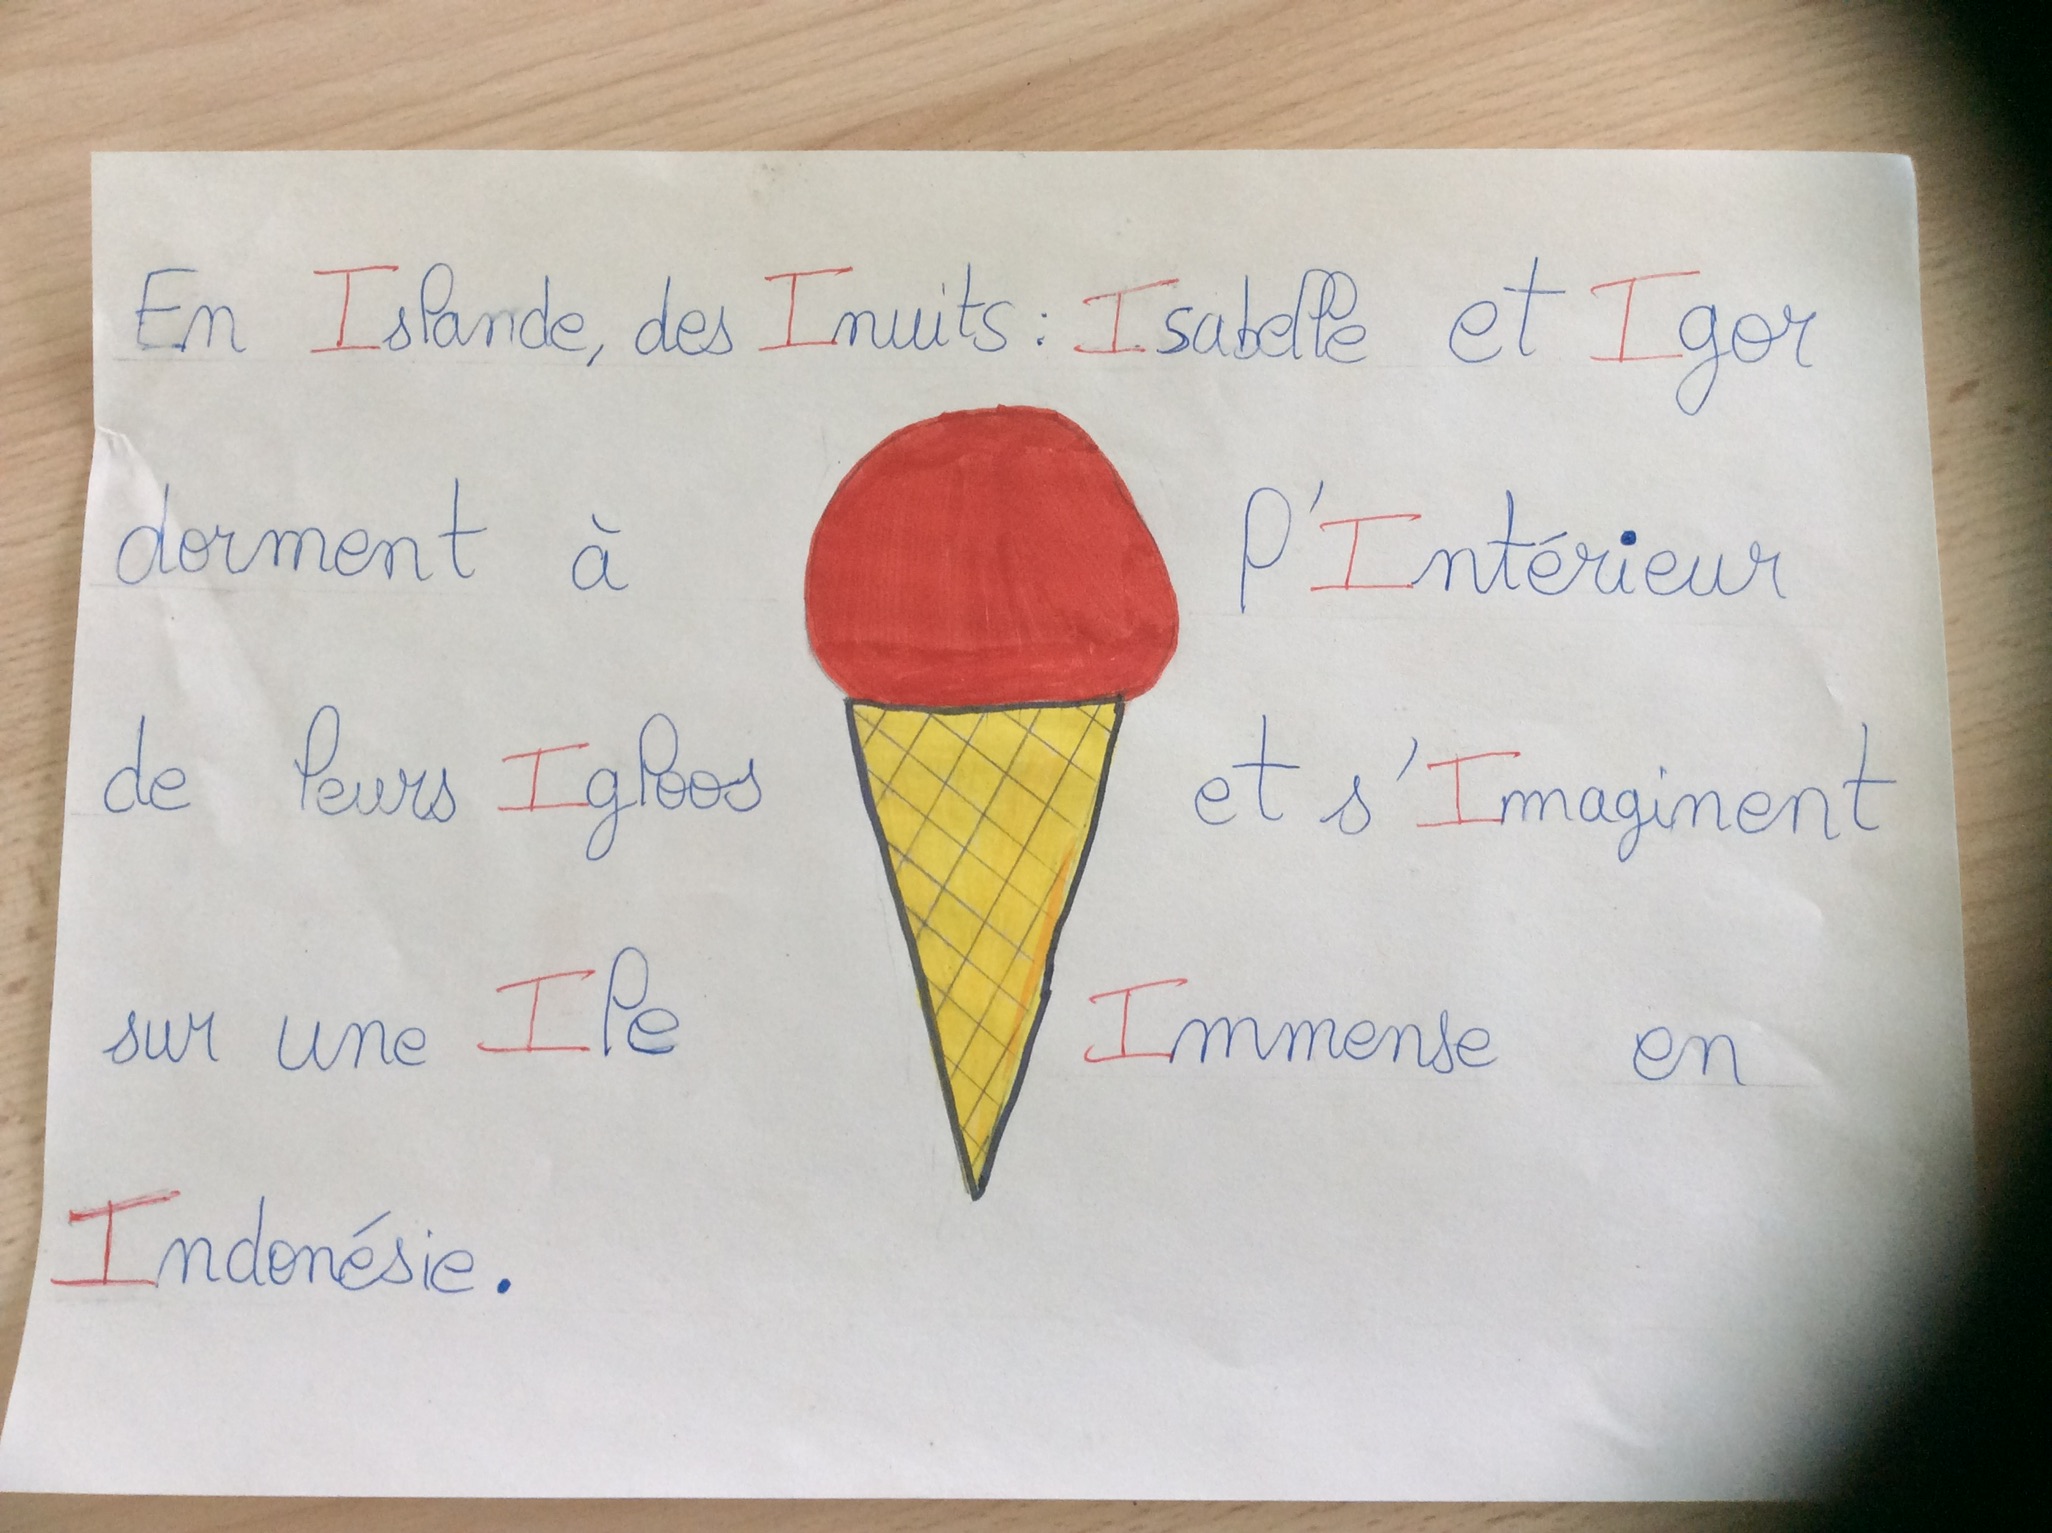 En Islande, des Inuits : Isabelle et Igor
dorment à l'Intérieur
de leurs Igloos et s'Imaginent
sur une Ile Immense en
Indonésie.